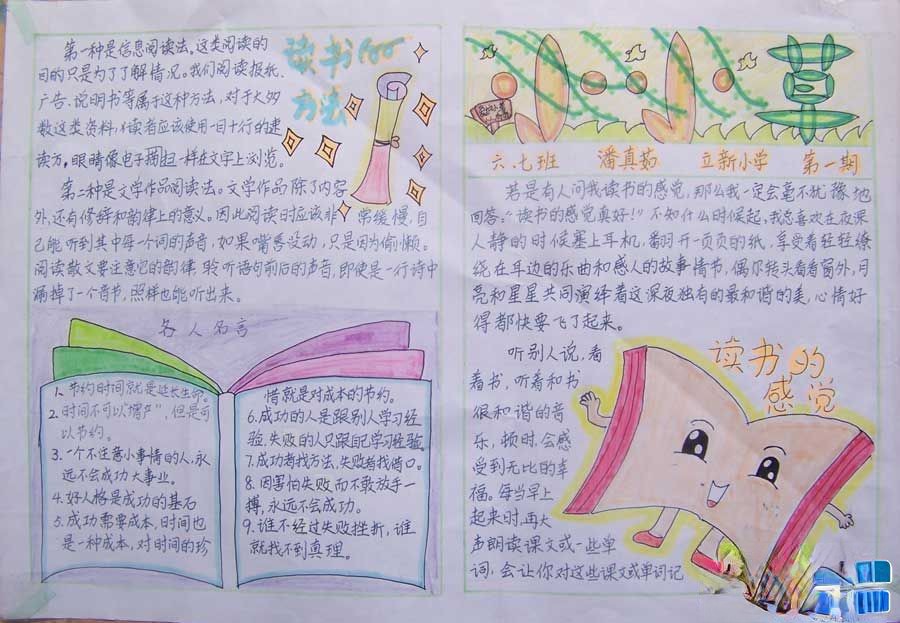 第一种是信息阅读法。这类阅读的
目的只是为了了解情况。我们阅读报纸、
广告、说明书等属于这种方法，对于大多
数这类资料，读者应该使用一目十行的速
读方，眼睛像电子扫描一样在文字上浏览。
第二种是文学作品阅读法。文学作品除了内容
外，还有修辞和韵律上的意义。因此阅读时应该非常缓慢，自
己能听到其中每一个词的声音，如果嘴唇没动，只是因为偷懒。
阅读散文要注意它的韵律，聆听语句前后的声音，即使是一行诗中
漏掉了一个音节，照样也能听出来。
读书的
方法
名人名言
1、节约时间就是延长生命。
2、时间不可以增产，但是可
以节约。
3、一个不注意小事情的人，永
远不会成功大事业。
4、好人格是成功的基石
5、成功需要成本，时间也
是一种成本，对时间的珍
惜就是对成本的节约。
6、成功的人是跟别人学习经
验，失败的人只跟自己学习经验。
7、成功者找方法，失败者找借口。
8、因害怕失败而不敢放手一
搏，永远不会成功。
9、谁不经过失败挫折，谁
就找不到真理。
六.七班 潘真茹 立新小学 第一期
若是有人问我读书的感觉，那么我一定会毫不犹豫地
回答：“读书的感觉真好！”不知什么时候起，我总喜欢在夜深
人静的时候塞上耳机，翻开一页页的纸，享受着轻轻缭
绕在耳边的乐曲和感人的故事情节，偶尔转头看看窗外，月
亮和星星共同演绎着这深夜独有的最和谐的美，心情好
得都快要飞了起来。
读书的
感觉
听别人说，看
着书，听着和书
很和谐的音
乐，顿时，会感
受到无比的幸
福。每当早上
起来时，再大
声朗读课文或一些单
词，会让你对这些课文或单词记